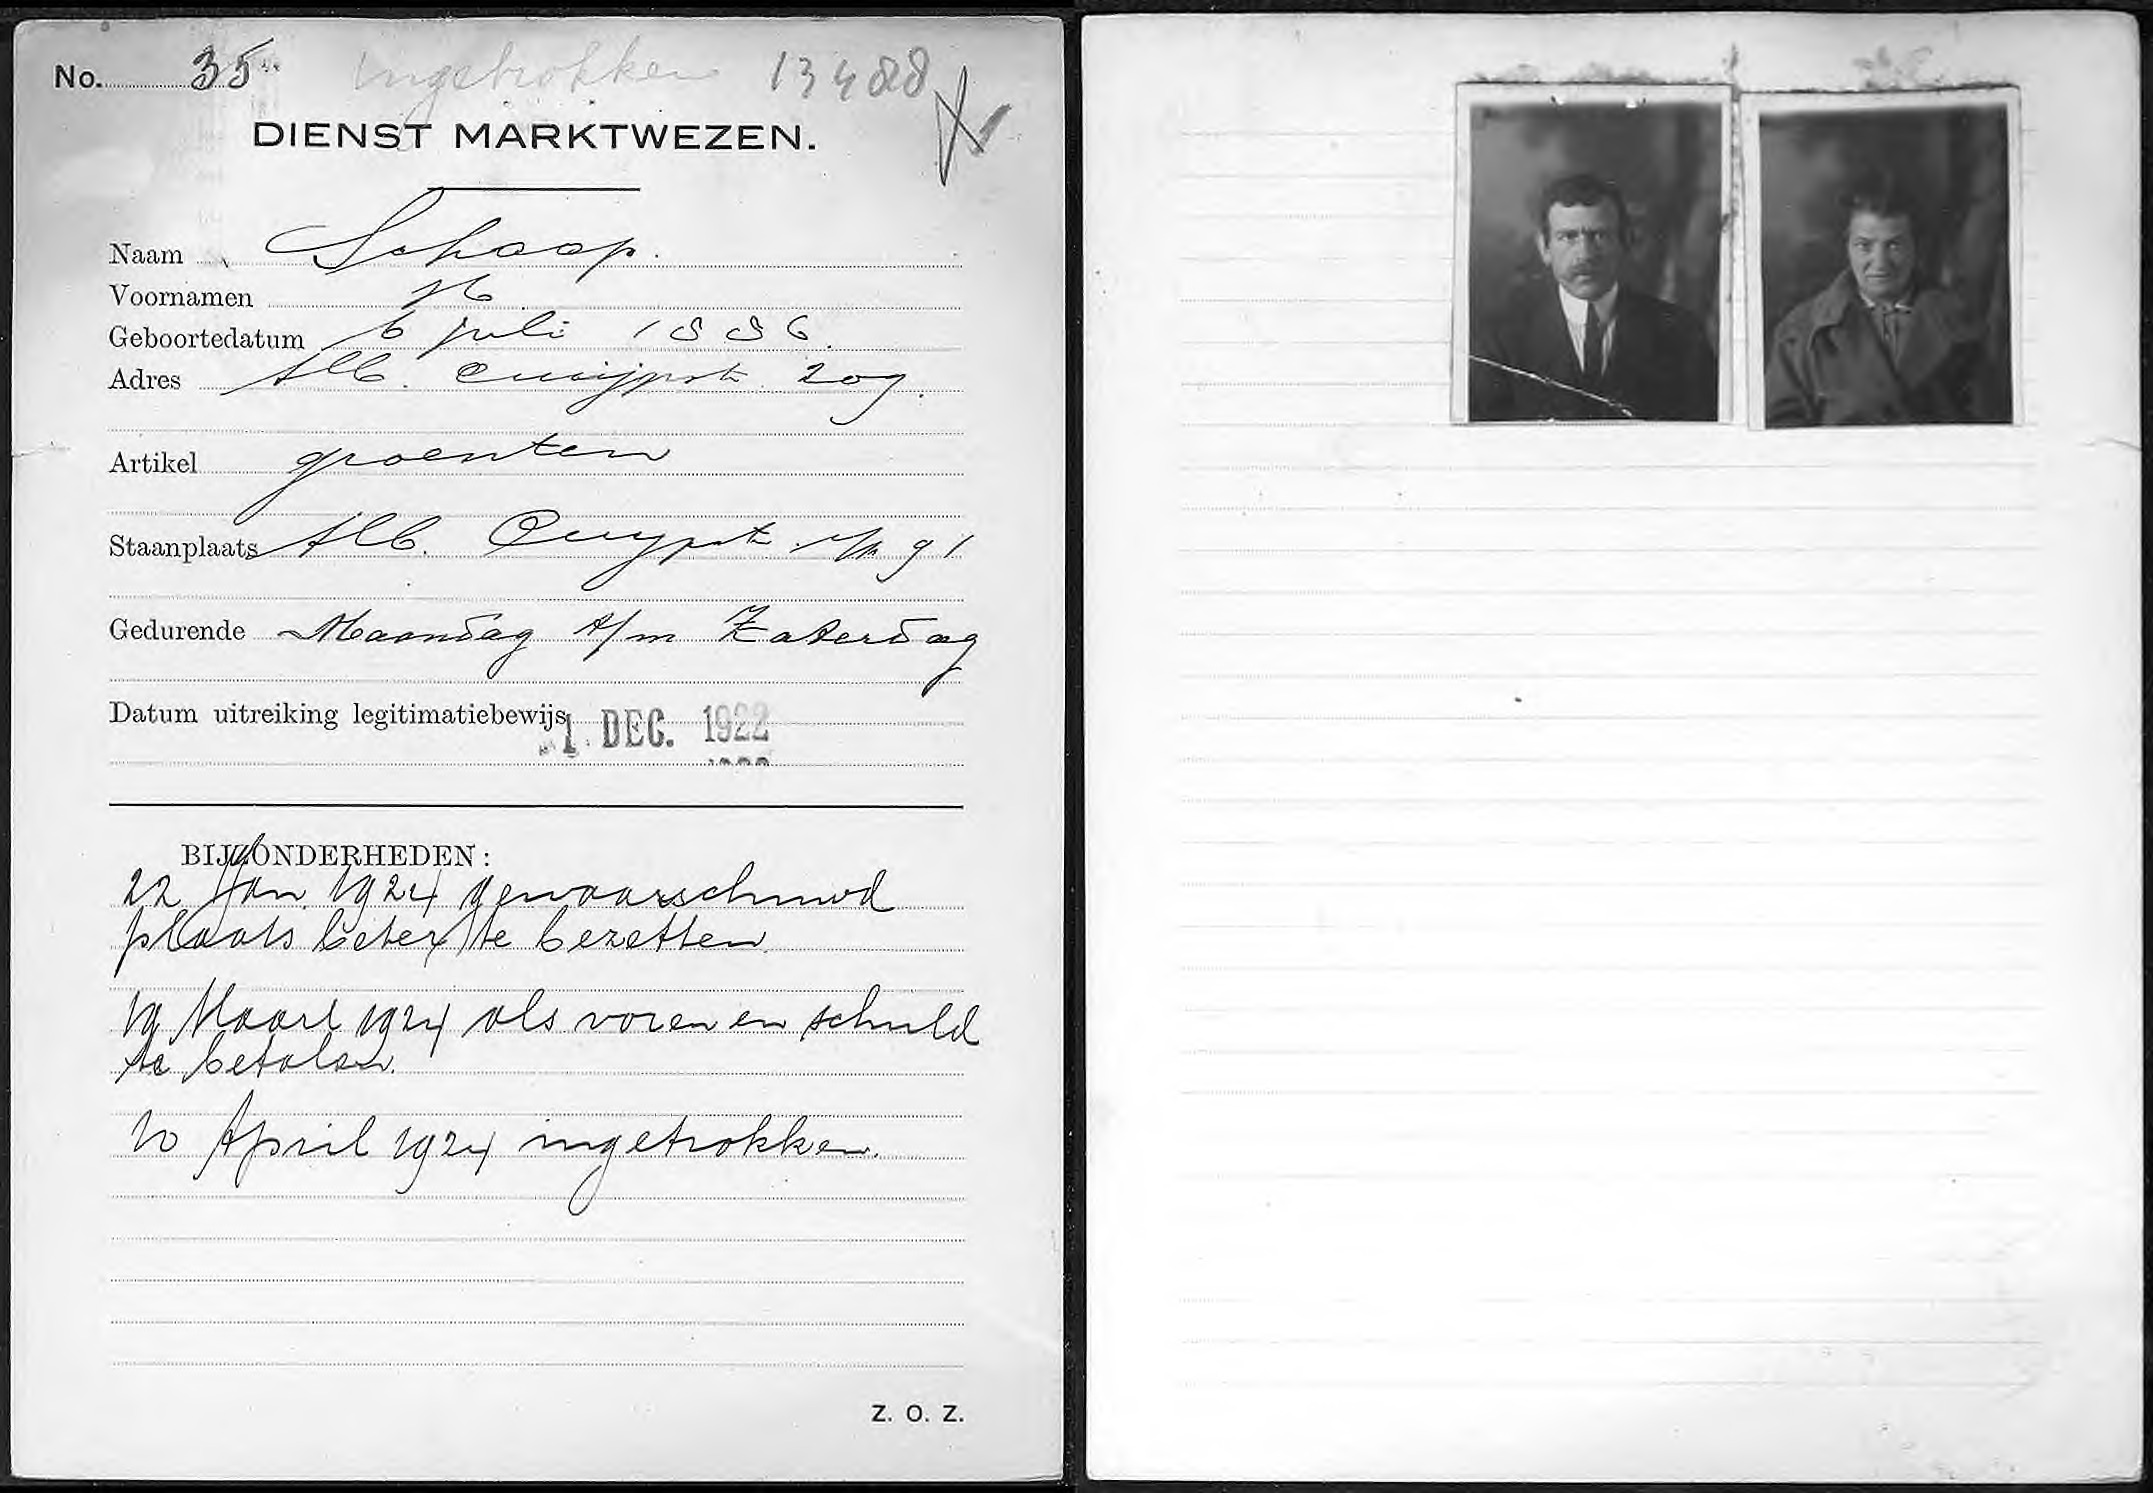 No. 35 Ingetrokken 13488
DIENST MARKTWEZEN.
Naam Schaap.
Voornamen
Geboortedatum 6 juli 1886.
Adres Alb. Cuijpstr. 209.
Artikel groenten
Staanplaats Alb. Cuypstr. 91
Gedurende Maandag t/m Zaterdag
Datum uitreiking legitimatiebewijs 1. DEC. 1922
BIJZONDERHEDEN:
22 Jan. 1924 gewaarschuwd
plaats beter te bezetten.
19 Maart 1924 als voren en schuld
te betalen.
10 April 1924 ingetrokken.
Z. O. Z.